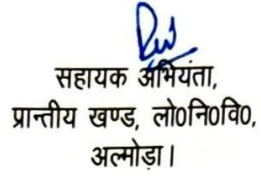 सहायक अभियंता,
प्रान्तीय खण्ड, लो०नि०वि०,
अल्मोड़ा।